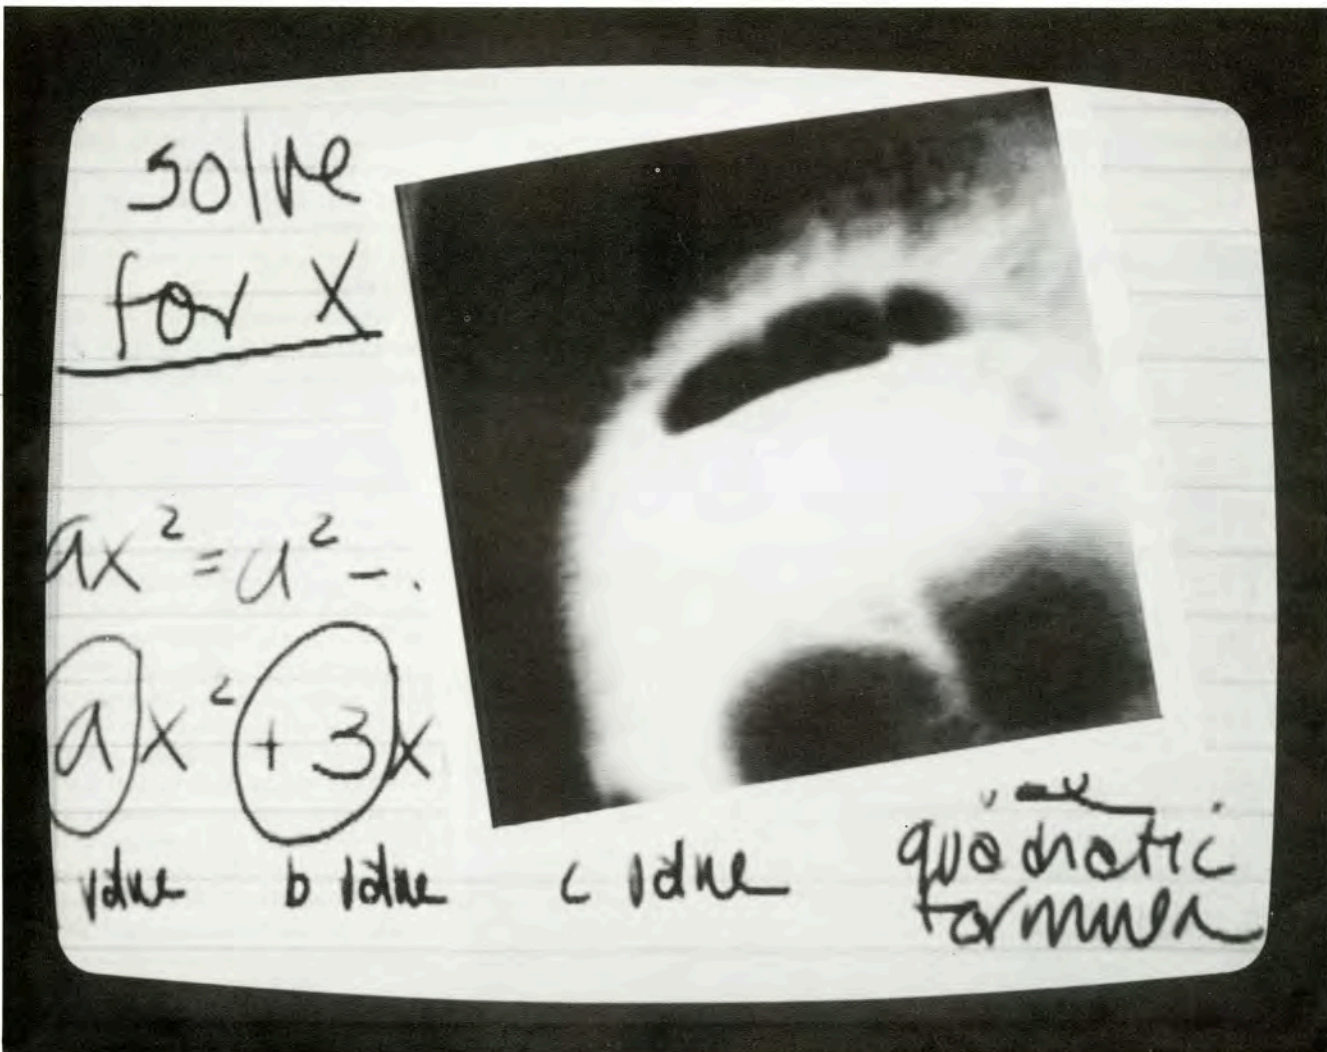 solve
for X
ax² = a² - .
ax² + 3x
value b value c value
use
quadratic
formula